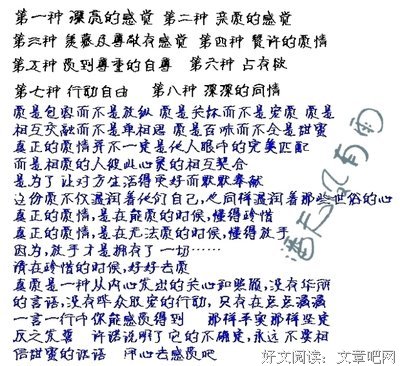 第一种 深厚的感觉 第二种 亲质的感觉
第三种 羡慕及尊敬有感觉 第四种 赞许的质情
第五种 受到尊重的自尊 第六种 占有欲
第七种 行动自由 第八种 深深的同情
质是包容而不是放纵 质是关怀而不是宠质 质是
相互交融而不是单相思 质是百味而不全是甜蜜
真正的质情并不一定是他人眼中的完美匹配
而是相质的人彼此心灵的相互契合
是为了让对方生活得更好而默默奉献
这份质不仅温润着他们自己，也同样温润着那些世俗的心
真正的质情，是在能质的时候，懂得珍惜
真正的质情，是在无法质的时候，懂得放手
因为，放手才是拥有了一切……
请在珍惜的时候，好好去质
真质是一种从内心发出的关心和照顾，没有华丽
的言语，没有哗众取宠的行动，只有在点点滴滴
一言一行中你能感受得到 那样平实那样坚定
反之发誓 许诺说明了它的不确定，永远不要相
信甜蜜的话语 用心去感受吧
好文阅读：文章吧网